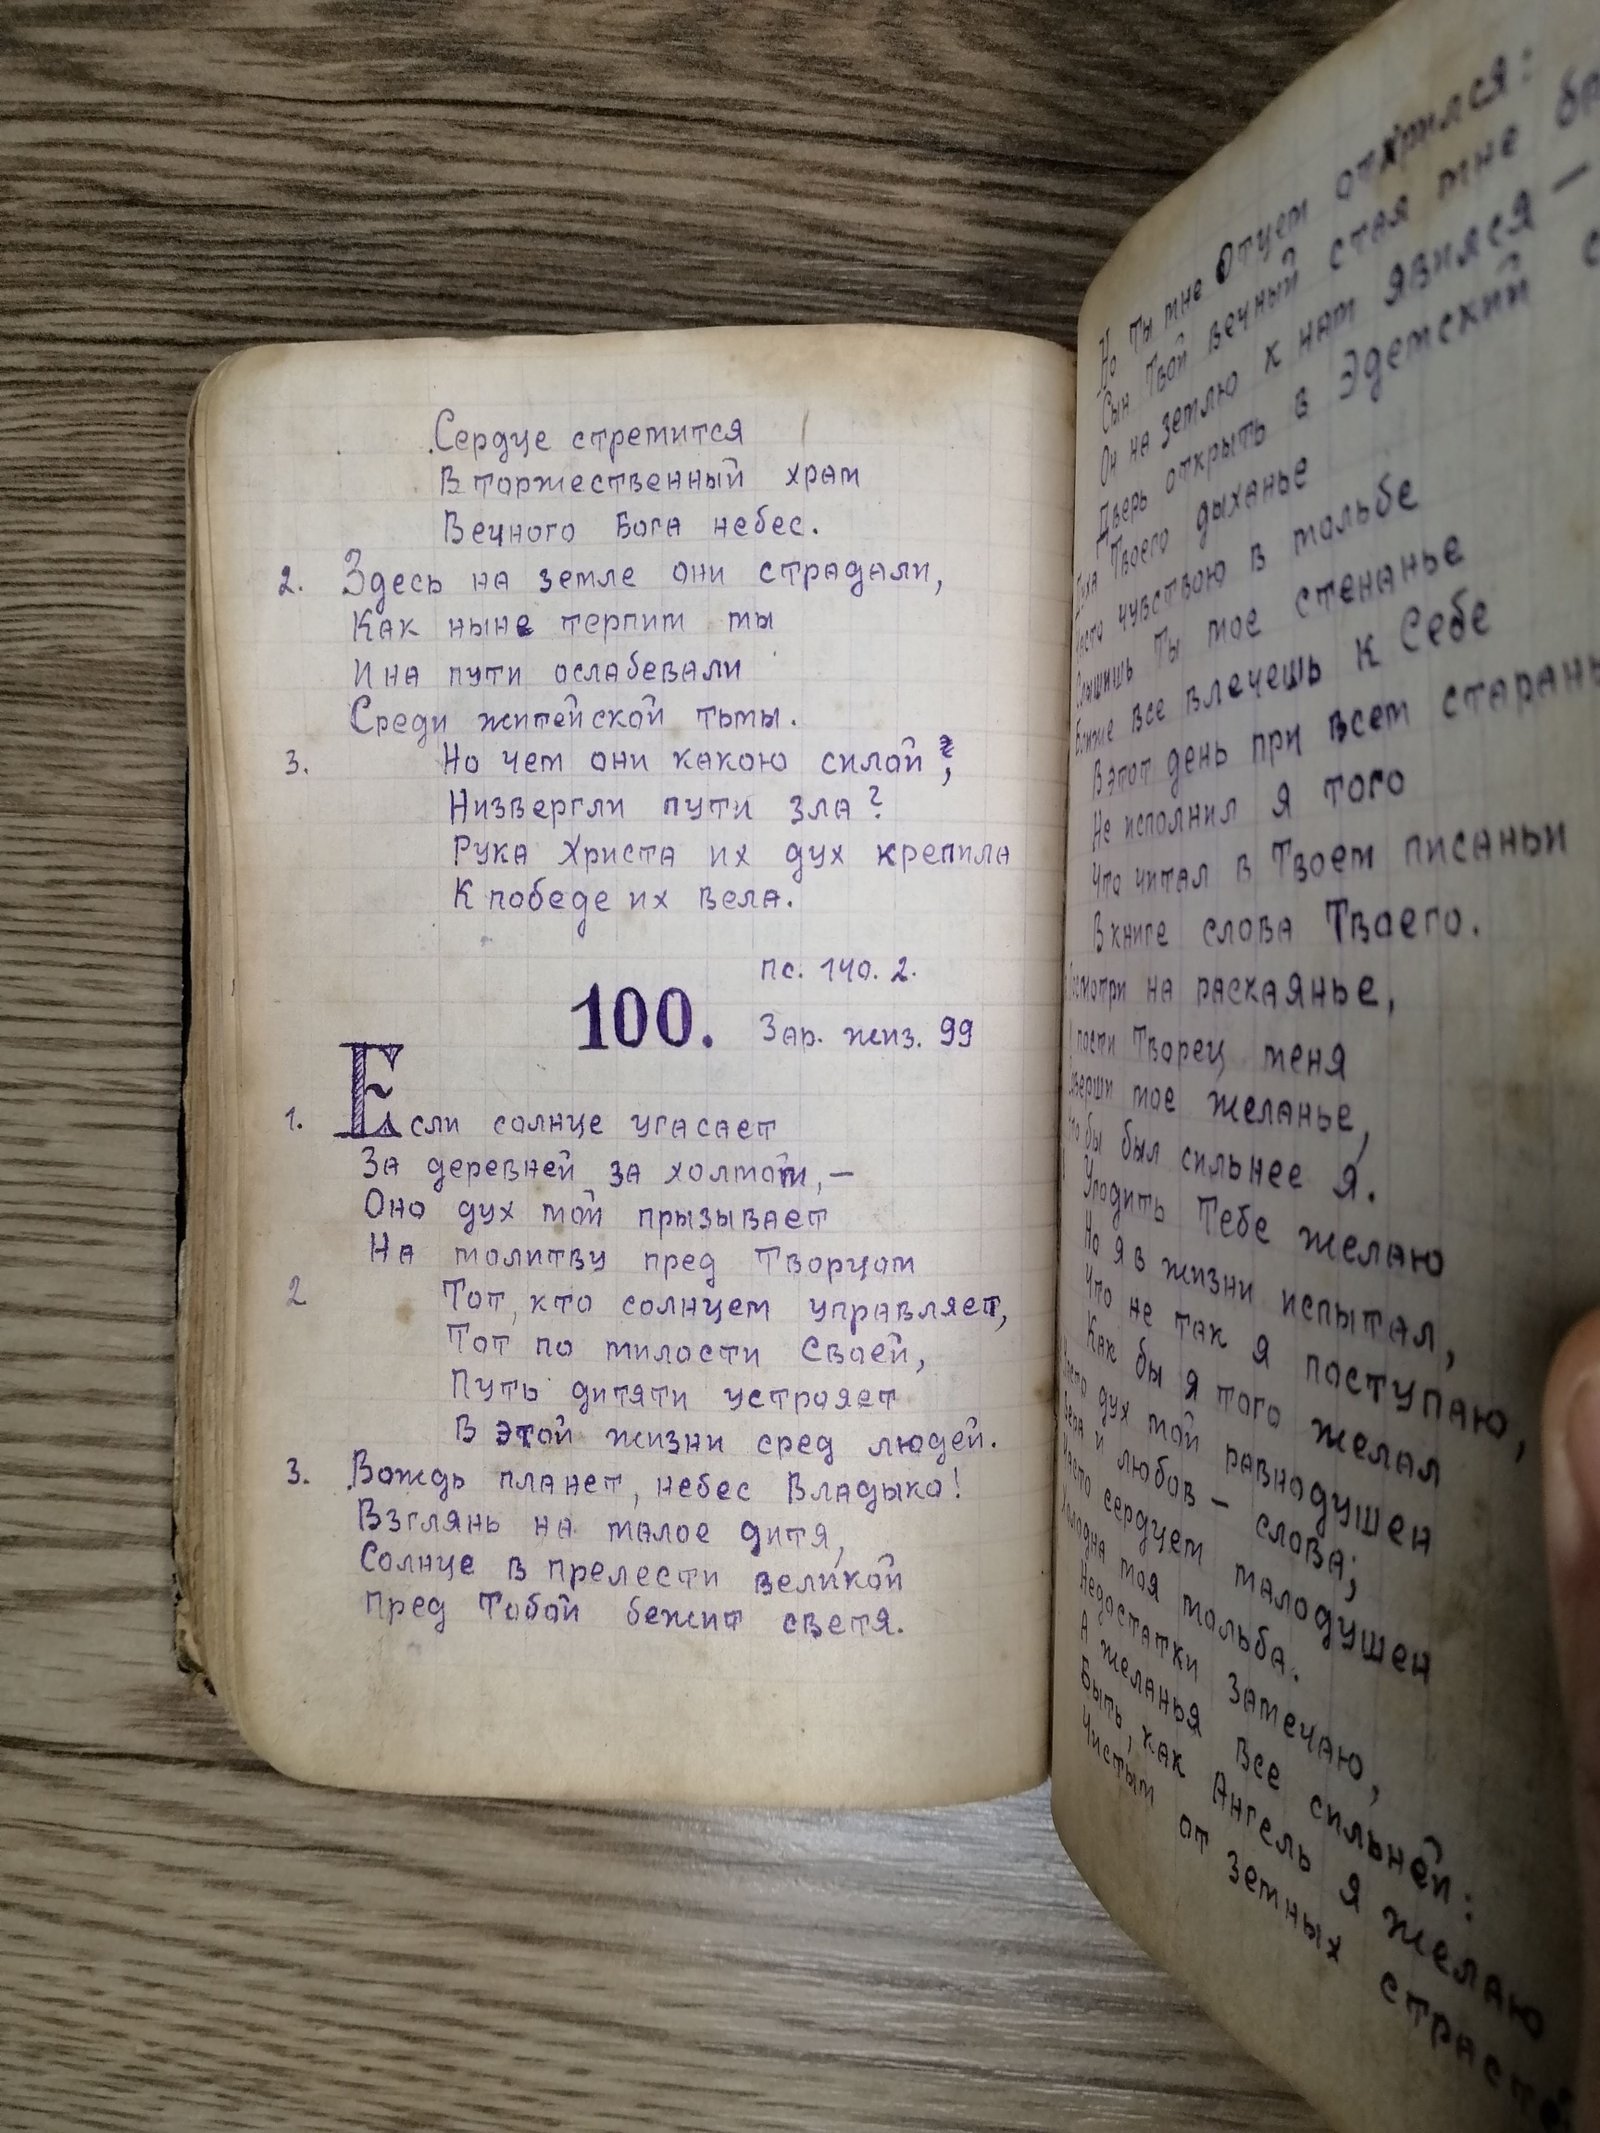 Сердце стремится
В торжественный храм
Вечного Бога небес.
2. Здесь на земле они страдали,
Как ныне терпим мы
И на пути ослабевали
Среди житейской тьмы.
3. Но чем они какою силой?,
Низвергли пути зла?
Рука Христа их дух крепила
К победе их вела.
пс. 140. 2.
100.
Зар. жиз. 99
1. Если солнце угасает
За деревней за холмом, —
Оно дух мой призывает
На молитву пред Творцом
2 Тот, кто солнцем управляет,
Тот по милости Своей,
Путь дитяти устрояет
В этой жизни сред людей.
3. Вождь планет, небес Владыко!
Взглянь на малое дитя,
Солнце в прелести великой
Пред Тобой бежит светя.
Но Ты мне Отцем открылся:
Сын Твой вечный стал мне
Он на землю к нам явился —
Дверь открыть в Эдемский
Духа Твоего дыханье
Часто чувствою в мольбе
Слышишь Ты мое стенанье
Боже все влечешь к Себе
В этот день при всем старань
Не исполнил я того
Что читал в Твоем писаньи
В книге слова Твоего.
на раскаянье,
Творец меня
мое желанье,
бы был сильнее я.
Угодить Тебе желаю
Но я в жизни испытал,
Что не так я поступаю,
Как бы я того желал
Часто дух мой равнодушен
Вера и любов — слова;
Часто сердцем малодушен
Холодна моя мольба.
Недостатки замечаю,
А желанья все сильней:
Быть, как Ангель я желаю
Чистым от земных страст